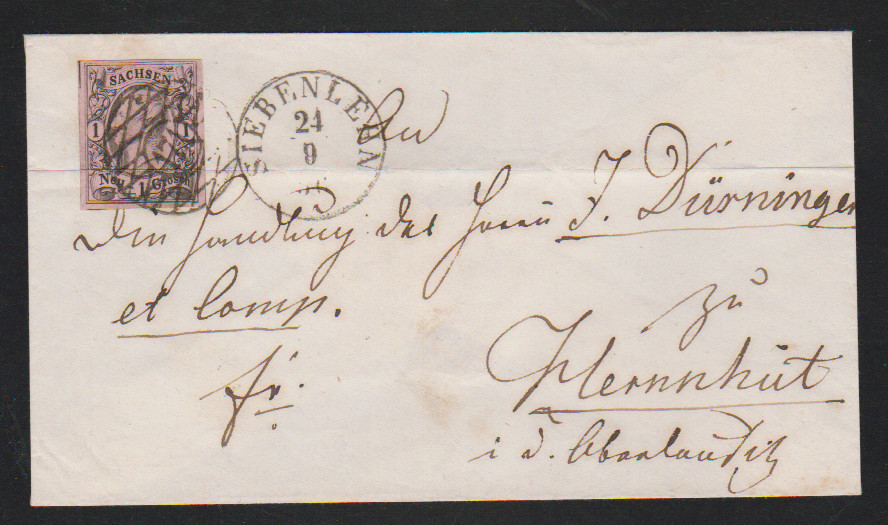 SACHSEN
1 1
Neu-Grosch.
1
SIEBENLEHN
24
9
An
den Handlung des Herrn J. Dürninger
et Comp.
fr.
zu
Herrnhut
i d. Oberlausitz